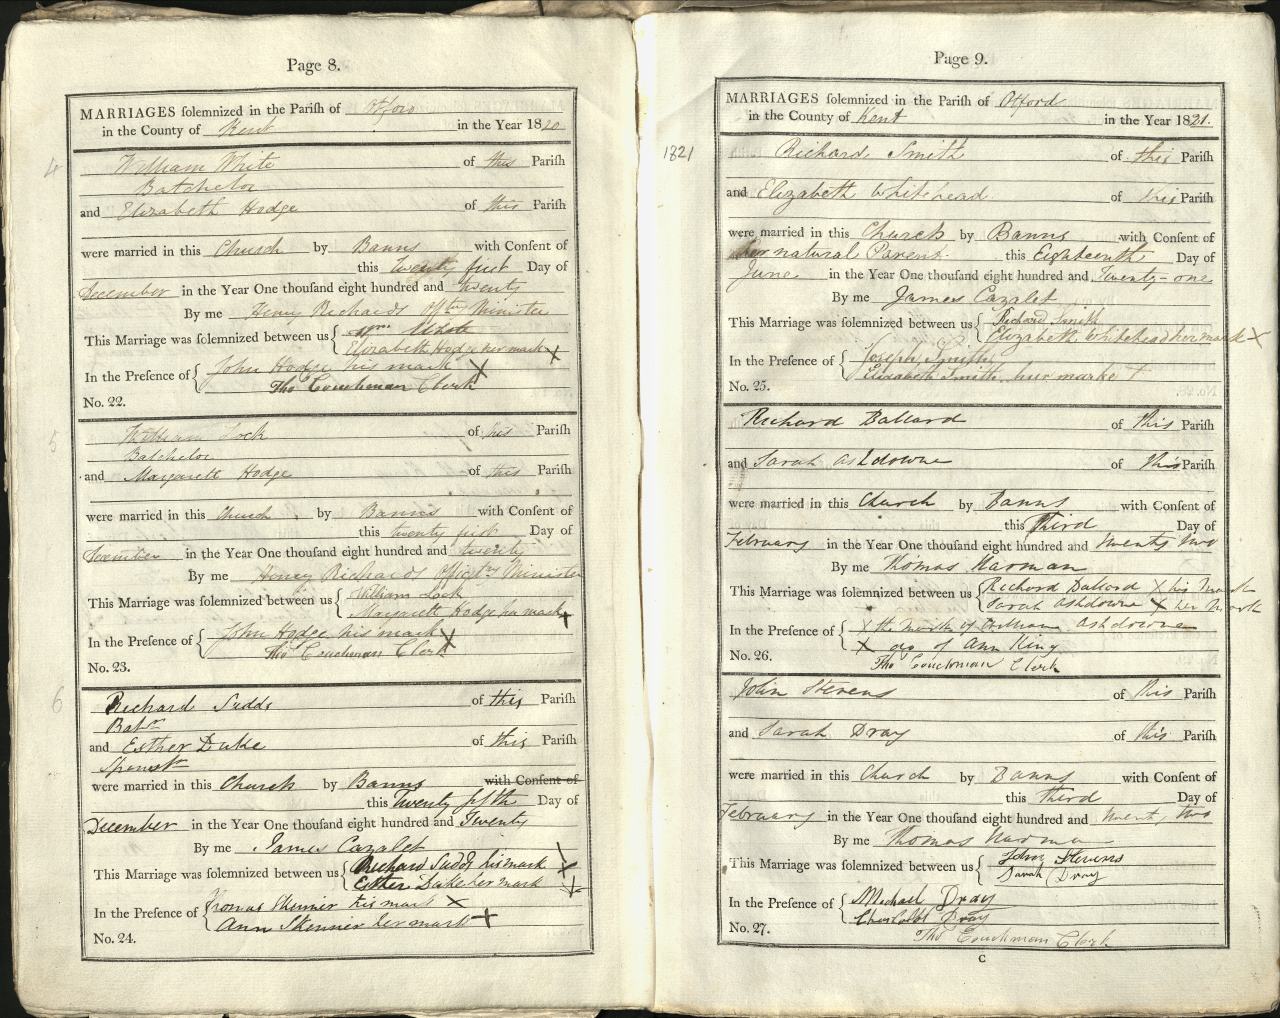 Page 8.
MARRIAGES solemnized in the Parish of Otford
in the County of Kent in the Year 1820
4 William White of this Parish
Batchelor
and Elizabeth Hodge of this Parish
were married in this Church by Banns with Consent of
this twenty first Day of
December in the Year One thousand eight hundred and twenty
By me Henry Richards Offtg Minister
This Marriage was solemnized between us Wm. White
Elizabeth Hodge her mark X
In the Presence of John Hodge his mark X
Tho Couchman Clerk
No. 22.
5 William Lock of this Parish
Batchelor
and Margarett Hodge of this Parish
were married in this Church by Banns with Consent of
this twenty first Day of
December in the Year One thousand eight hundred and twenty
By me Henry Richards Minister
This Marriage was solemnized between us William Lock
Margarett Hodge her mark +
In the Presence of John Hodge his mark X
Tho Couchman Clerk
No. 23.
6 Richard Sudds of this Parish
Batr
and Esther Duke of this Parish
Spinstr
were married in this Church by Banns with Consent of
this Twenty fifth Day of
December in the Year One thousand eight hundred and Twenty
By me James Cazalet
This Marriage was solemnized between us Richard Sudds his mark X
Esther Duke her mark X
In the Presence of Thomas Skenner his mark X
Ann Skenner her mark +
No. 24.
Page 9.
MARRIAGES solemnized in the Parish of Otford
in the County of Kent in the Year 1821.
1821 Richard Smith of this Parish
and Elizabeth Whitehead of this Parish
were married in this Church by Banns with Consent of
her natural Parent this Eighteenth Day of
June in the Year One thousand eight hundred and Twenty-one
By me James Cazalet
This Marriage was solemnized between us Richard Smith
Elizabeth Whitehead her mark X
In the Presence of Joseph Smith
Elizabeth Smith her marke +
No. 25.
Richard Ballard of this Parish
and Sarah Ashdowne of this Parish
were married in this Church by Banns with Consent of
this Third Day of
February in the Year One thousand eight hundred and twenty two
By me Thomas Harman
This Marriage was solemnized between us Richard Ballard X his Mark
Sarah Ashdowne X her Mark
In the Presence of X the Mark of Ashdowne
X do of Ann King
No. 26. Tho Couchman Clerk
John Stevens of this Parish
and Sarah Dray of this Parish
were married in this Church by Banns with Consent of
this third Day of
February in the Year One thousand eight hundred and twenty two
By me Thomas Harman
This Marriage was solemnized between us John Stevens
Sarah Dray
In the Presence of Michael Dray
Dray
No. 27. Tho Couchman Clerk
C